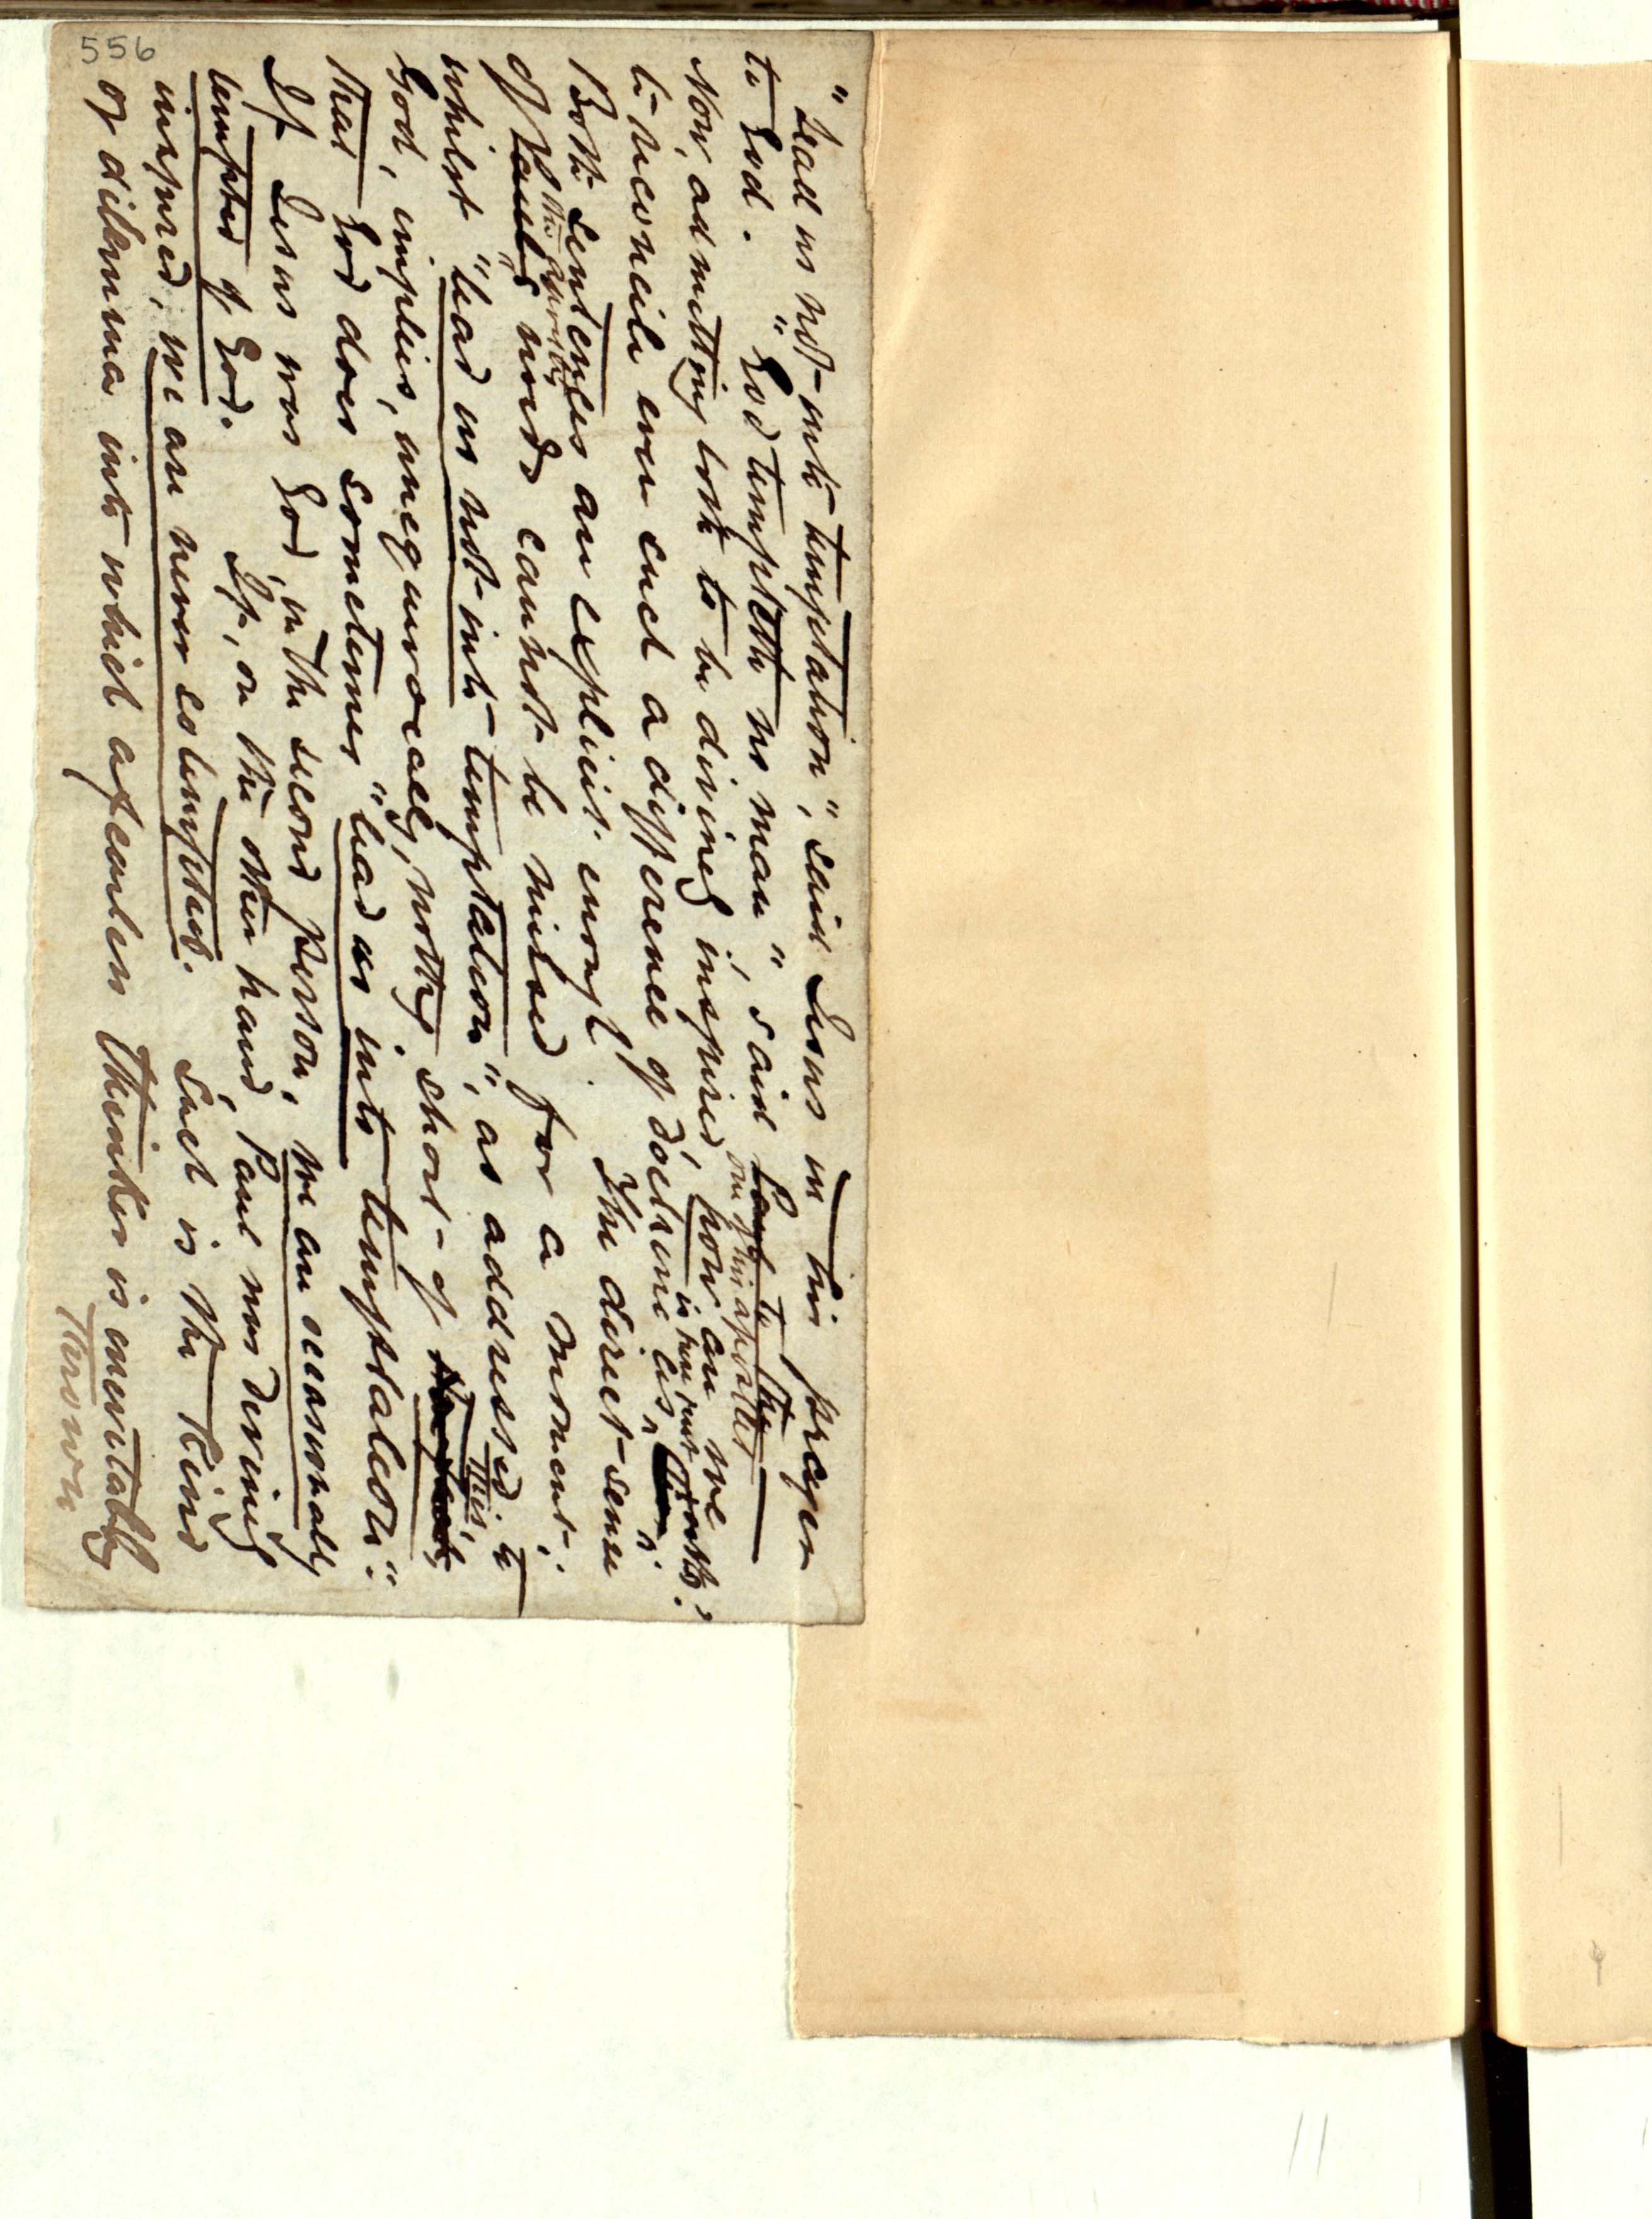 "Lead us not into temptation", said Jesus in his prayer
to God. "God tempteth no man", said Paul to the
one of his apostles
Now, admitting both to be divinely inspired, how are we
to reconcile even such a difference of doctrine as is here put forth?
Both sentences are explicit enough. The direct sense
of Paul's words cannot be missed for a moment;
the Apostle's
whilst "lead us not into temptation", as addressed to
God, implies, unequivocally, nothing short of this,
that God does sometimes "lead us into temptation".
If Jesus was God, in the second person, we are occasionally
tempted of God. If, on the other hand, Paul was divinely
inspired, we are never so tempted. Such is the kind
of dilemma into which a fearless Thinker is inevitably
thrown.
556